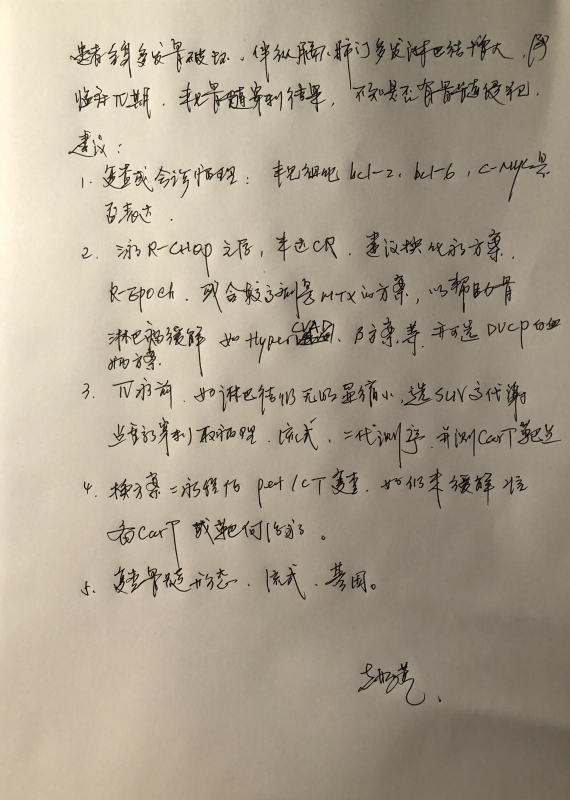 患者全身多发骨破坏、伴纵膈、肺门多发淋巴结增大，属
临床IV期，未见骨髓穿刺结果，不知是否有骨髓侵犯．
建议：
1. 复查或会诊病理：未见细胞 bcl-2，bcl-6，C-Myc是
否表达．
2. 3疗R-CHOP之后，未达CR．建议换化疗方案
R-EPOCH．或含较高剂量MTX的方案，以帮助骨
淋巴瘤缓解 如Hyper CVAD B方案等，并可选DVCP
方案．
3. IV疗前，如淋巴结仍无明显缩小，选SUV高代谢
穿刺取病理．流式．二代测序．并测CarT靶点
4. 换方案二疗程后 pet/CT复查．如仍未缓解
CarT或靶向治疗。
5. 复查骨髓形态．流式．基因。